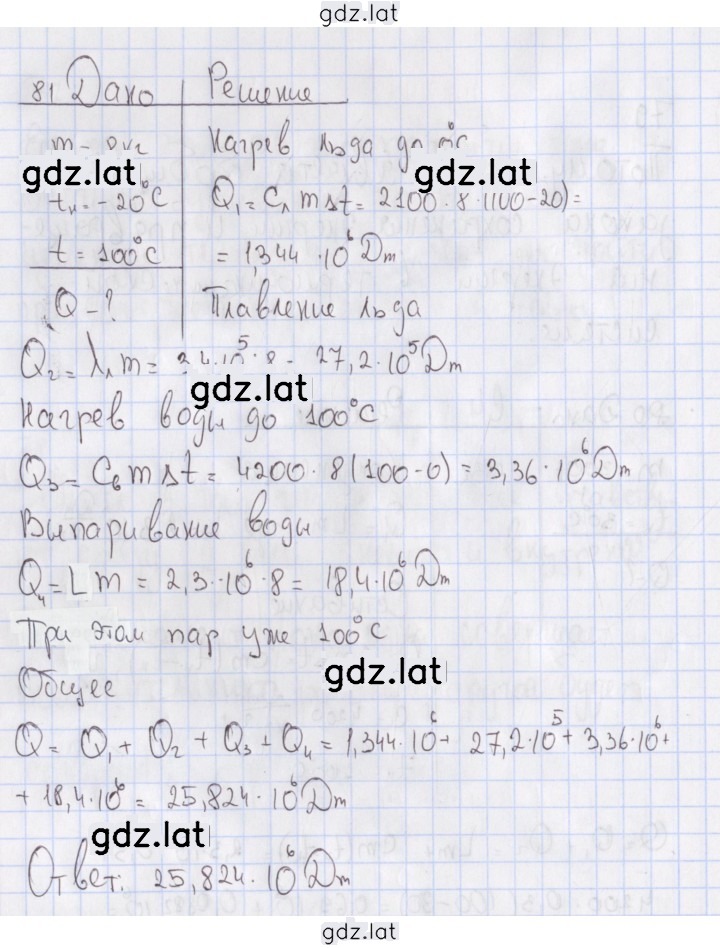 gdz.lat
81 Дано Решение
Нагрев льда до
gdz.lat gdz.lat
-20°C Q₁ = Cл m Δt = 2100 · 8 · (100-20) =
t = 100°C = 1,344 · 10⁶ Дж
Q - ? Плавление льда
Q₂ = λл m = 27,2 · 10⁵ Дж
gdz.lat
Нагрев воды до 100°C
Q₃ = Cв m Δt = 4200 · 8 (100-0) = 3,36 · 10⁶ Дж
Выпаривание воды
Q₄ = L m = 2,3 · 10⁶ · 8 = 18,4 · 10⁶ Дж
При этом пар уже 100°C
gdz.lat
Общее
Q = Q₁ + Q₂ + Q₃ + Q₄ = 1,344 · 10⁶ + 27,2 · 10⁵ + 3,36 · 10⁶ +
+ 18,4 · 10⁶ = 25,824 · 10⁶ Дж
gdz.lat
Ответ: 25,824 · 10⁶ Дж
gdz.lat